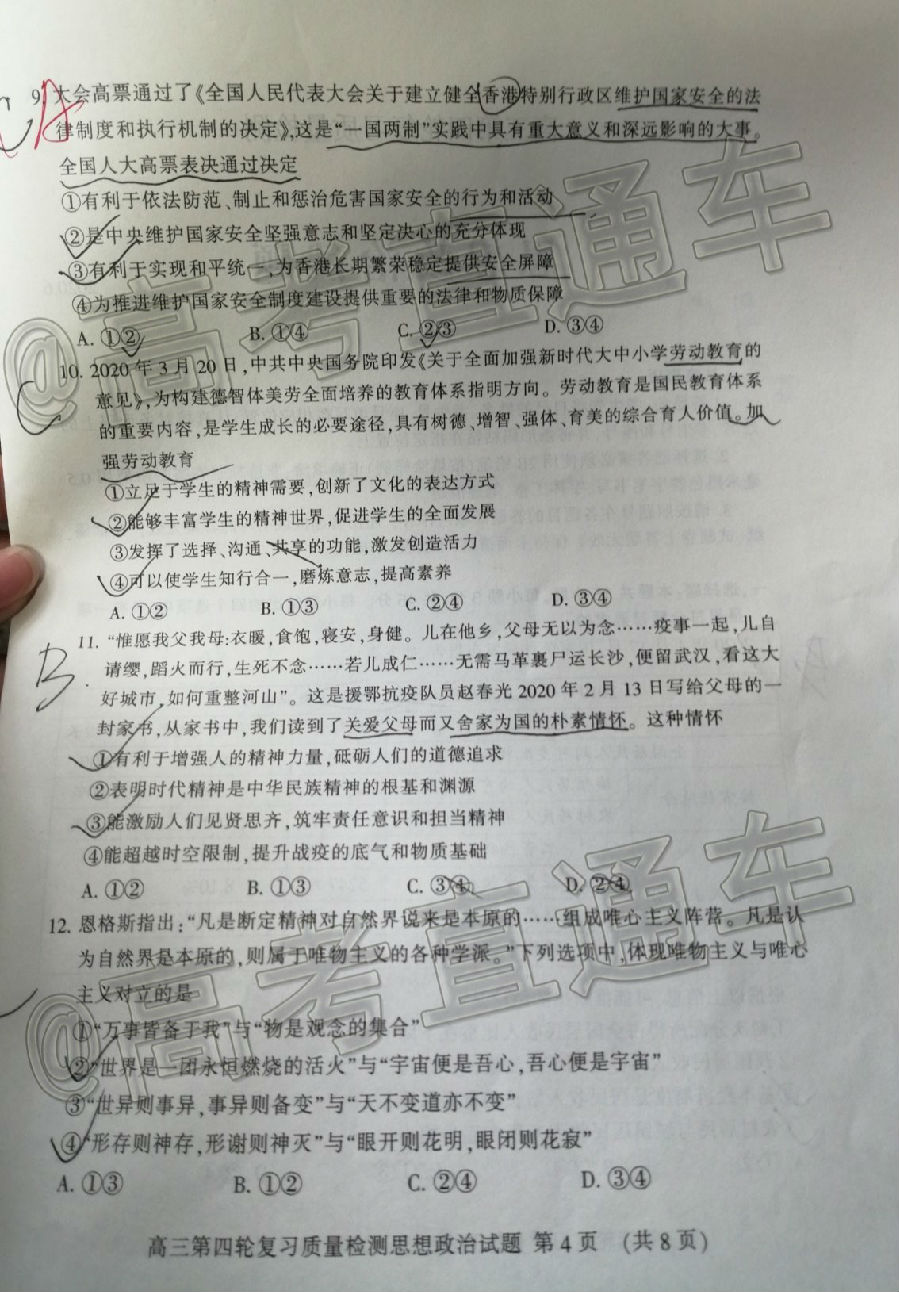 9. 大会高票通过了《全国人民代表大会关于建立健全香港特别行政区维护国家安全的法
律制度和执行机制的决定》,这是“一国两制”实践中具有重大意义和深远影响的大事。
全国人大高票表决通过决定
①有利于依法防范、制止和惩治危害国家安全的行为和活动
②是中央维护国家安全坚强意志和坚定决心的充分体现
③有利于实现和平统一,为香港长期繁荣稳定提供安全屏障
④为推进维护国家安全制度建设提供重要的法律和物质保障
A. ①② B. ①④ C. ②③ D. ③④
10. 2020年3月20日,中共中央国务院印发《关于全面加强新时代大中小学劳动教育的
意见》,为构建德智体美劳全面培养的教育体系指明方向。劳动教育是国民教育体系
的重要内容,是学生成长的必要途径,具有树德、增智、强体、育美的综合育人价值。加
强劳动教育
①立足于学生的精神需要,创新了文化的表达方式
②能够丰富学生的精神世界,促进学生的全面发展
③发挥了选择、沟通、共享的功能,激发创造活力
④可以使学生知行合一,磨炼意志,提高素养
A. ①② B. ①③ C. ②④ D. ③④
B
11. “惟愿我父我母:衣暖,食饱,寝安,身健。儿在他乡,父母无以为念……疫事一起,儿自
请缨,蹈火而行,生死不念……若儿成仁……无需马革裹尸运长沙,便留武汉,看这大
好城市,如何重整河山”。这是援鄂抗疫队员赵春光2020年2月13日写给父母的一
封家书,从家书中,我们读到了关爱父母而又舍家为国的朴素情怀。这种情怀
①有利于增强人的精神力量,砥砺人们的道德追求
②表明时代精神是中华民族精神的根基和渊源
③能激励人们见贤思齐,筑牢责任意识和担当精神
④能超越时空限制,提升战疫的底气和物质基础
A. ①② B. ①③ C. ③④ D. ②④
12. 恩格斯指出:“凡是断定精神对自然界说来是本原的……组成唯心主义阵营。凡是认
为自然界是本原的,则属于唯物主义的各种学派。”下列选项中,体现唯物主义与唯心
主义对立的是
①“万事皆备于我”与“物是观念的集合”
②“世界是一团永恒燃烧的活火”与“宇宙便是吾心,吾心便是宇宙”
③“世异则事异,事异则备变”与“天不变道亦不变”
④“形存则神存,形谢则神灭”与“眼开则花明,眼闭则花寂”
A. ①③ B. ①② C. ②④ D. ③④
高三第四轮复习质量检测思想政治试题 第4页 (共8页)
@高考直通车
@高考直通车